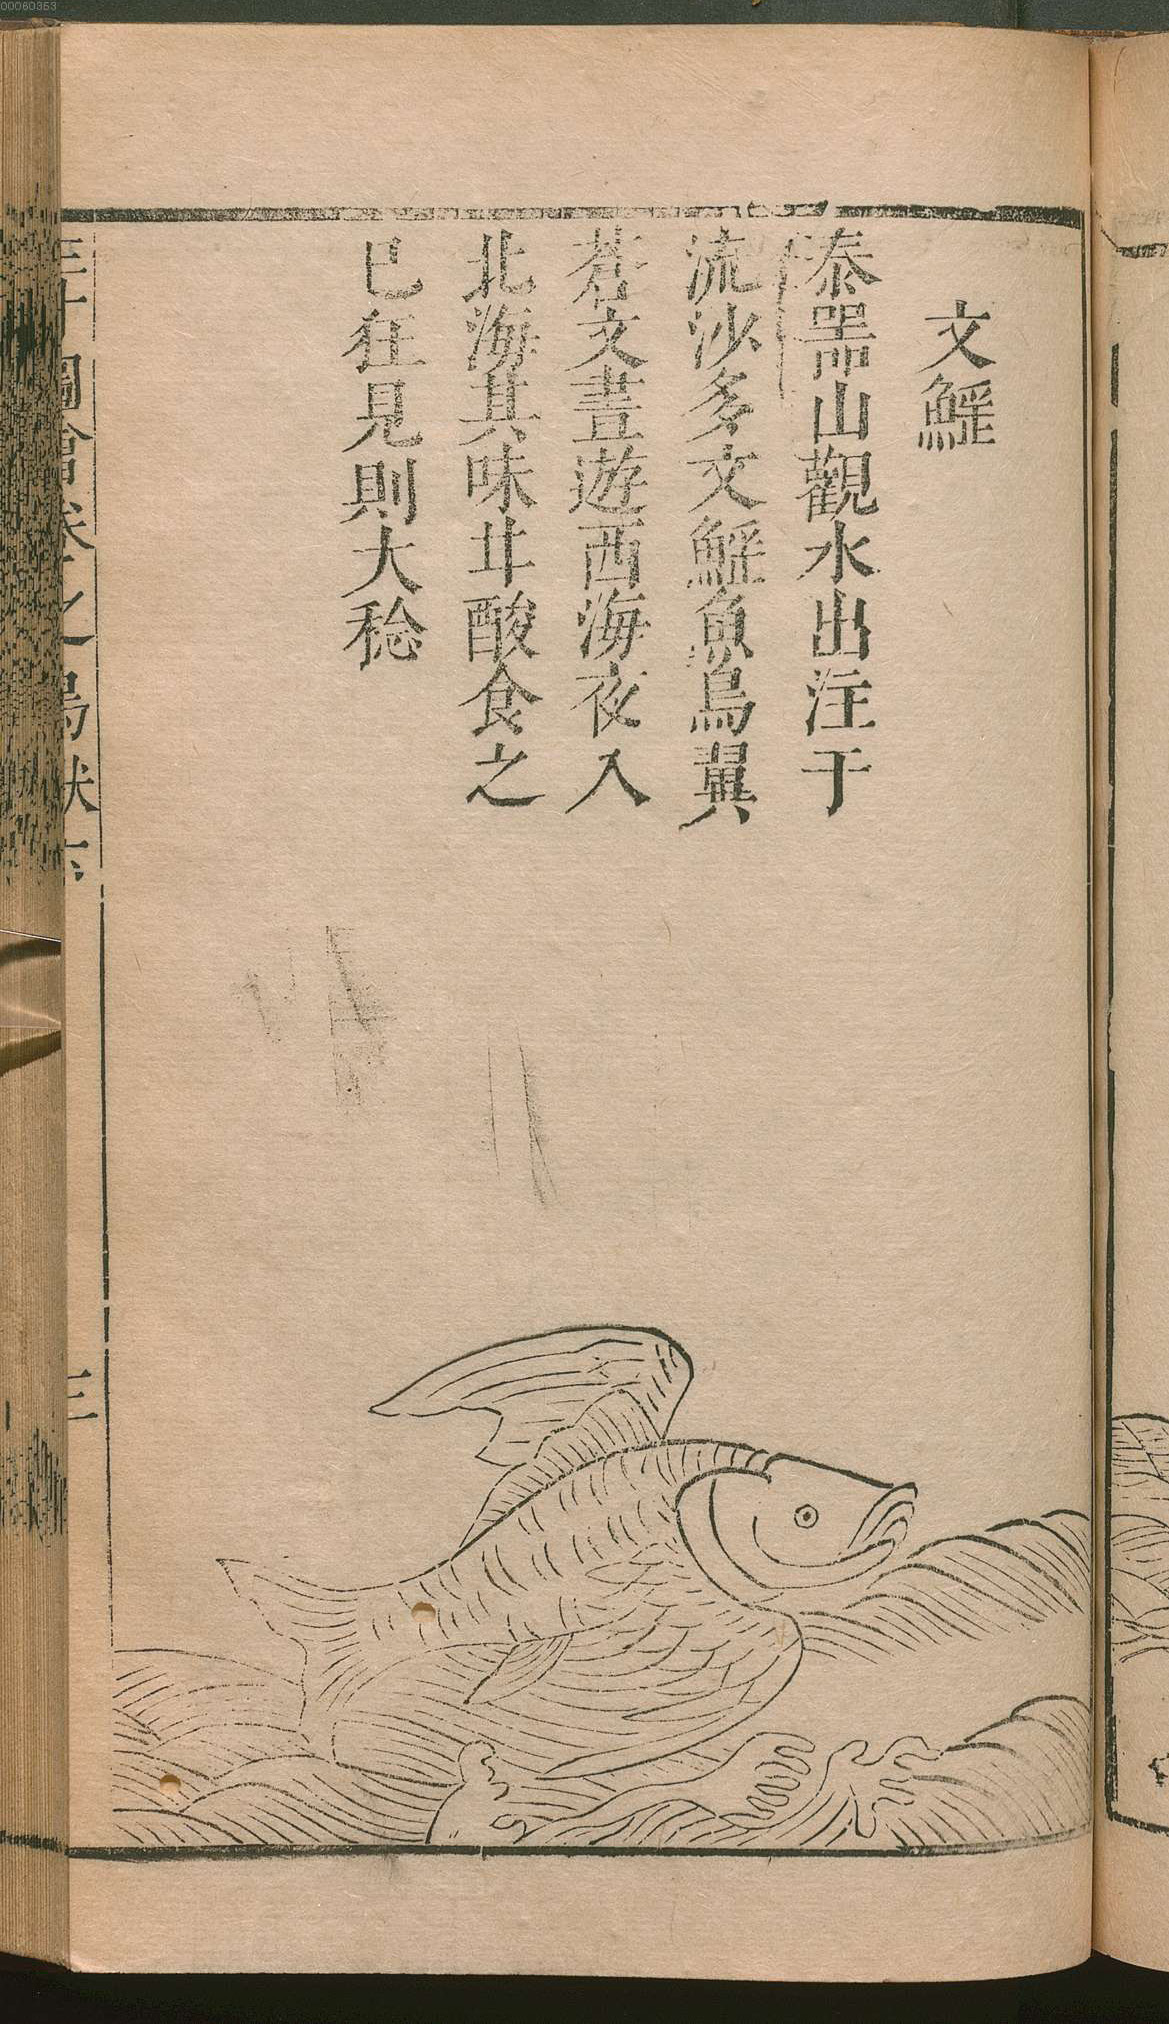 文鰩
泰噐山觀水出注于
流沙多文鰩魚鳥翼
蒼文晝遊西海夜入
北海其味甘酸食之
已狂見則大稔
三才圖會卷之鳥獸
三
00060353